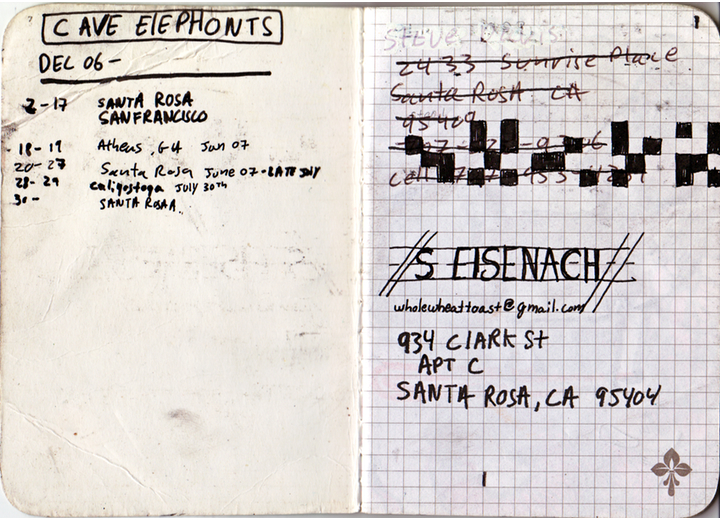 CAVE ElEPHONTS
DEC 06-
2-17 SANTA ROSA
SANFRANCISCO
18-19 Atheus, GA Jun 07
20-27 Santa Rosa June 07-LATE JULY
28-29 Caligostoga JULY 30TH
30- SANTA ROSAA
1
STEVE
2433 Sunrise Place
Santa Rosa CA
95409
cell
S EISENACH
wholewheattoast@gmail.com
934 ClARK St
APT C
SANTA ROSA, CA 95404
1